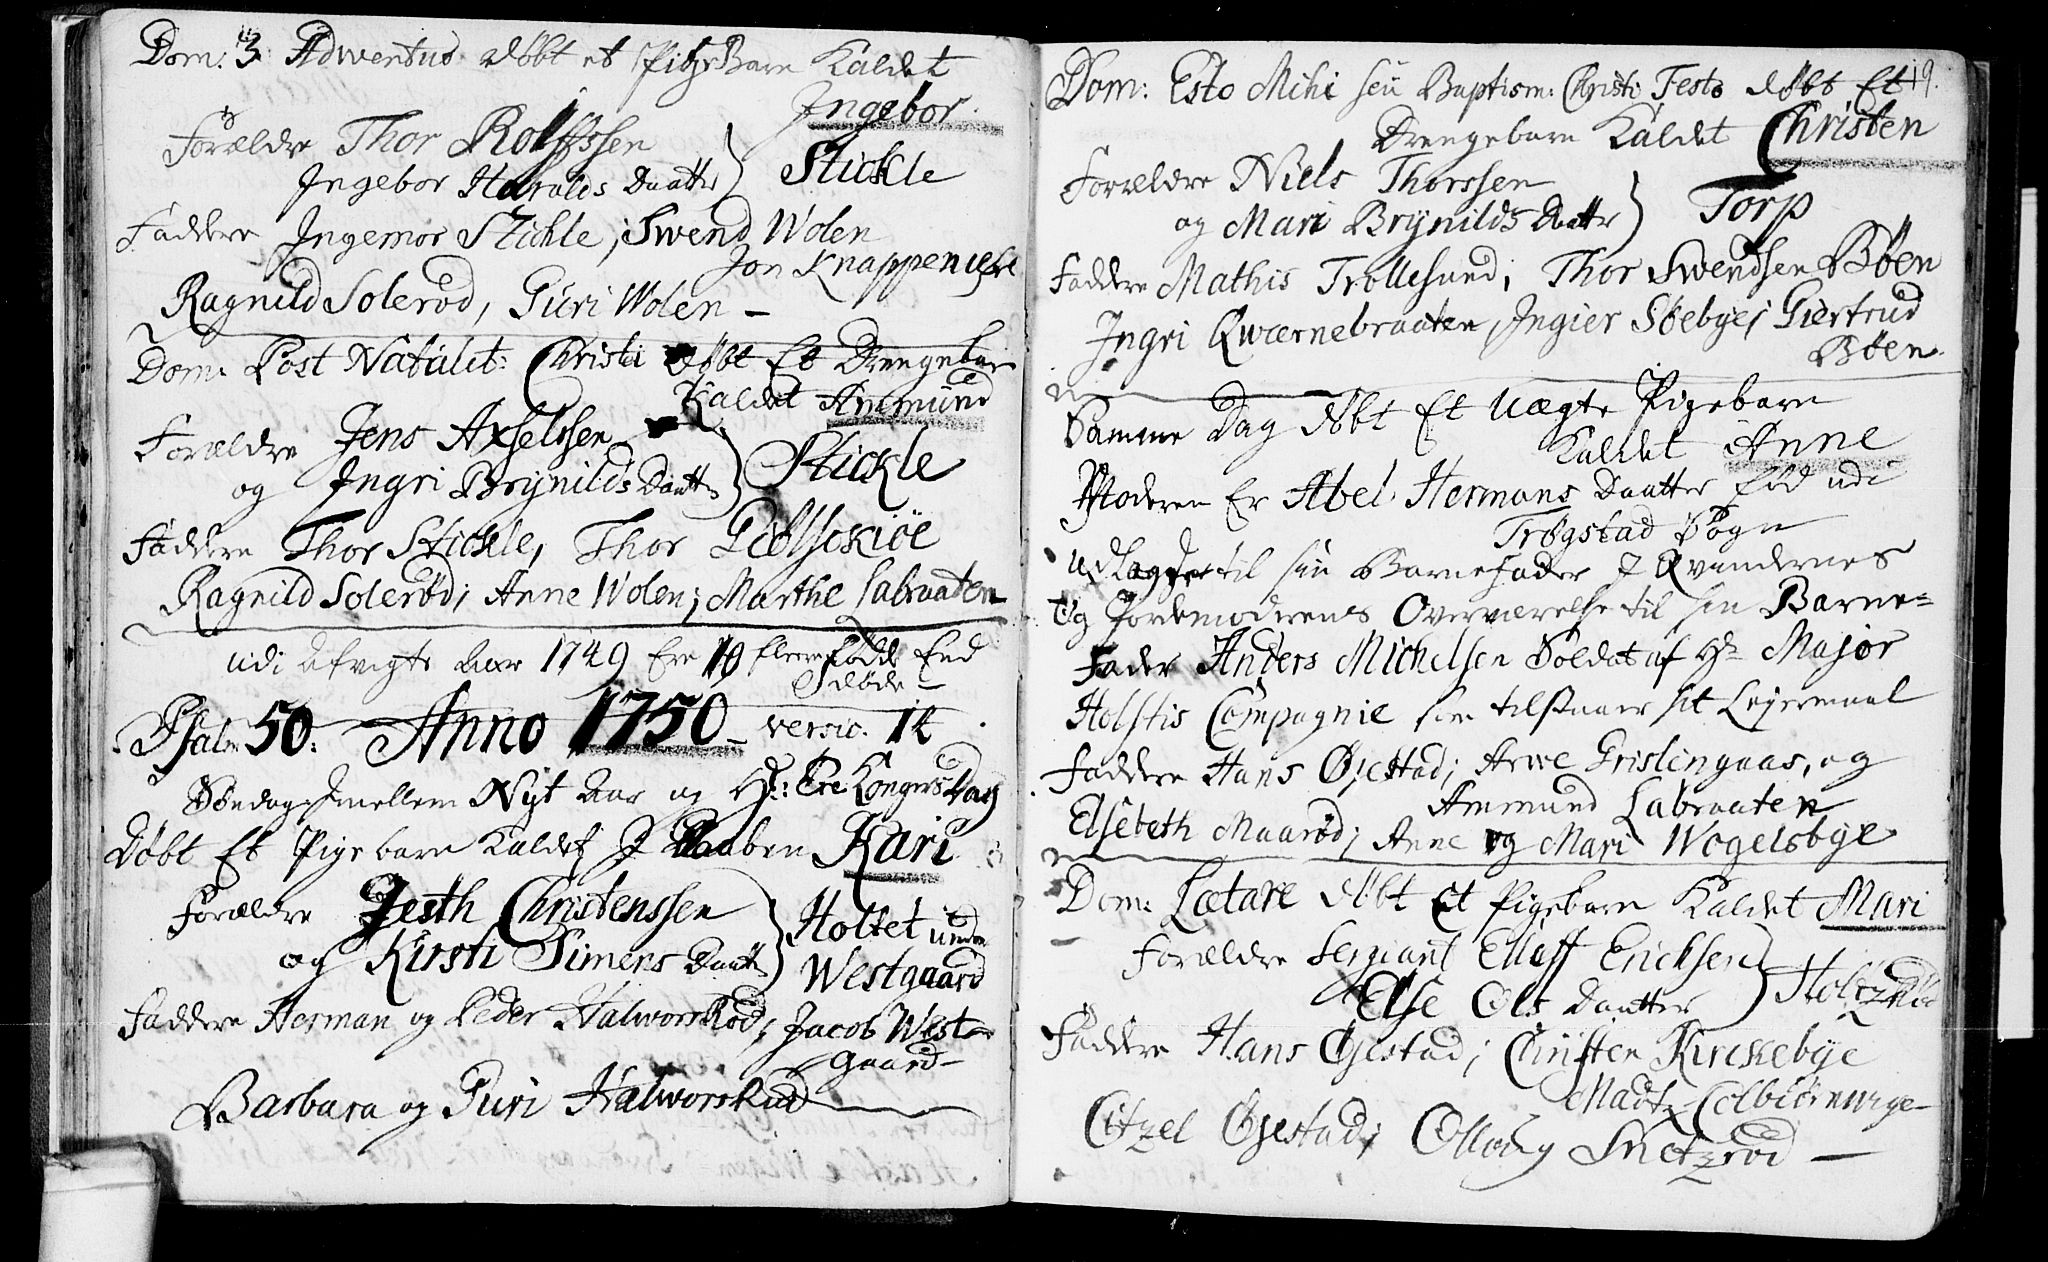 Dom: 3 Adventus døbt et Pigebarn Kaldet
Ingebor
Forældre Thor Rolfssen
Ingebor Haralds Daatter } Stickle
Faddere Ingemor Stickle, Swend Wolen
Jon Knappen
Ragnild Solerød, Guri Wolen –
Dom: Post Natalit: Christi døbt Et Drengebarn
Kaldet Ammund
Forældre Jens Axselssen
og Ingri Brÿnilds Daatt } Stickle
Faddere Thor Stickle, Thor
Ragnild Solerød; Anne Wolen; Marthe Labraaten
udi Afvigte Aar 1749 Ere 10 fleere fødde End
døde
Psal: 50: Anno 1750 – versic. 14
Søndag Imellem Nyt Aar og H: Tre Kongers Dag
Døbt Et Pigebarn Kaldet I Daaben Kari
Forældre Jesth Christenssen
og Kirsti Simens Daatt } Holtet under
Westgaard
Faddere Herman og Peder Halworsrød; Jacob West-
gaard –
Barbara og Guri Halworsrud
19.
Dom: Esto Mihi seu Baptism: Christi Festo døbt Et
Drengebarn Kaldet Christen
Forældre Niels Thorssen
og Mari Brÿnilds Daatter } Torp
Faddere Mathis Trollesund; Thor Swendsen Bøen
Ingri Qwærnebraaten, Ingier Søebye; Giertrud
Bøen.
Samme Dag døbt Et Uægte Pigebarn
Kaldet Anne
Moderen Er Abel Hermans Daatter fød udi
Trøgstad Sogn
udlagger til sin Barnefader I Qvindernes
Og Jordemoderens Overværelse til sin Barne=
Fader Anders Michelsen Soldat af Hr Major
Holstis Compagnie som tilstaaer sit Lejermaal
Faddere Hans Øjestad; Arwe Grislingaas, og
Ammund Labraaten
Elsebeth Maarød; Anne og Mari Wogelsbye
Dom: Lætare døbt et Pigebarn Kaldet Mari
Forældre Sergiant Ellef Ericksen
Else Ols Daatter }
Faddere Hans Øjestad; Christen Kirckebye
Madtz Colbiørnurge
Citzel Øjestad; Ollong Snetzrød –